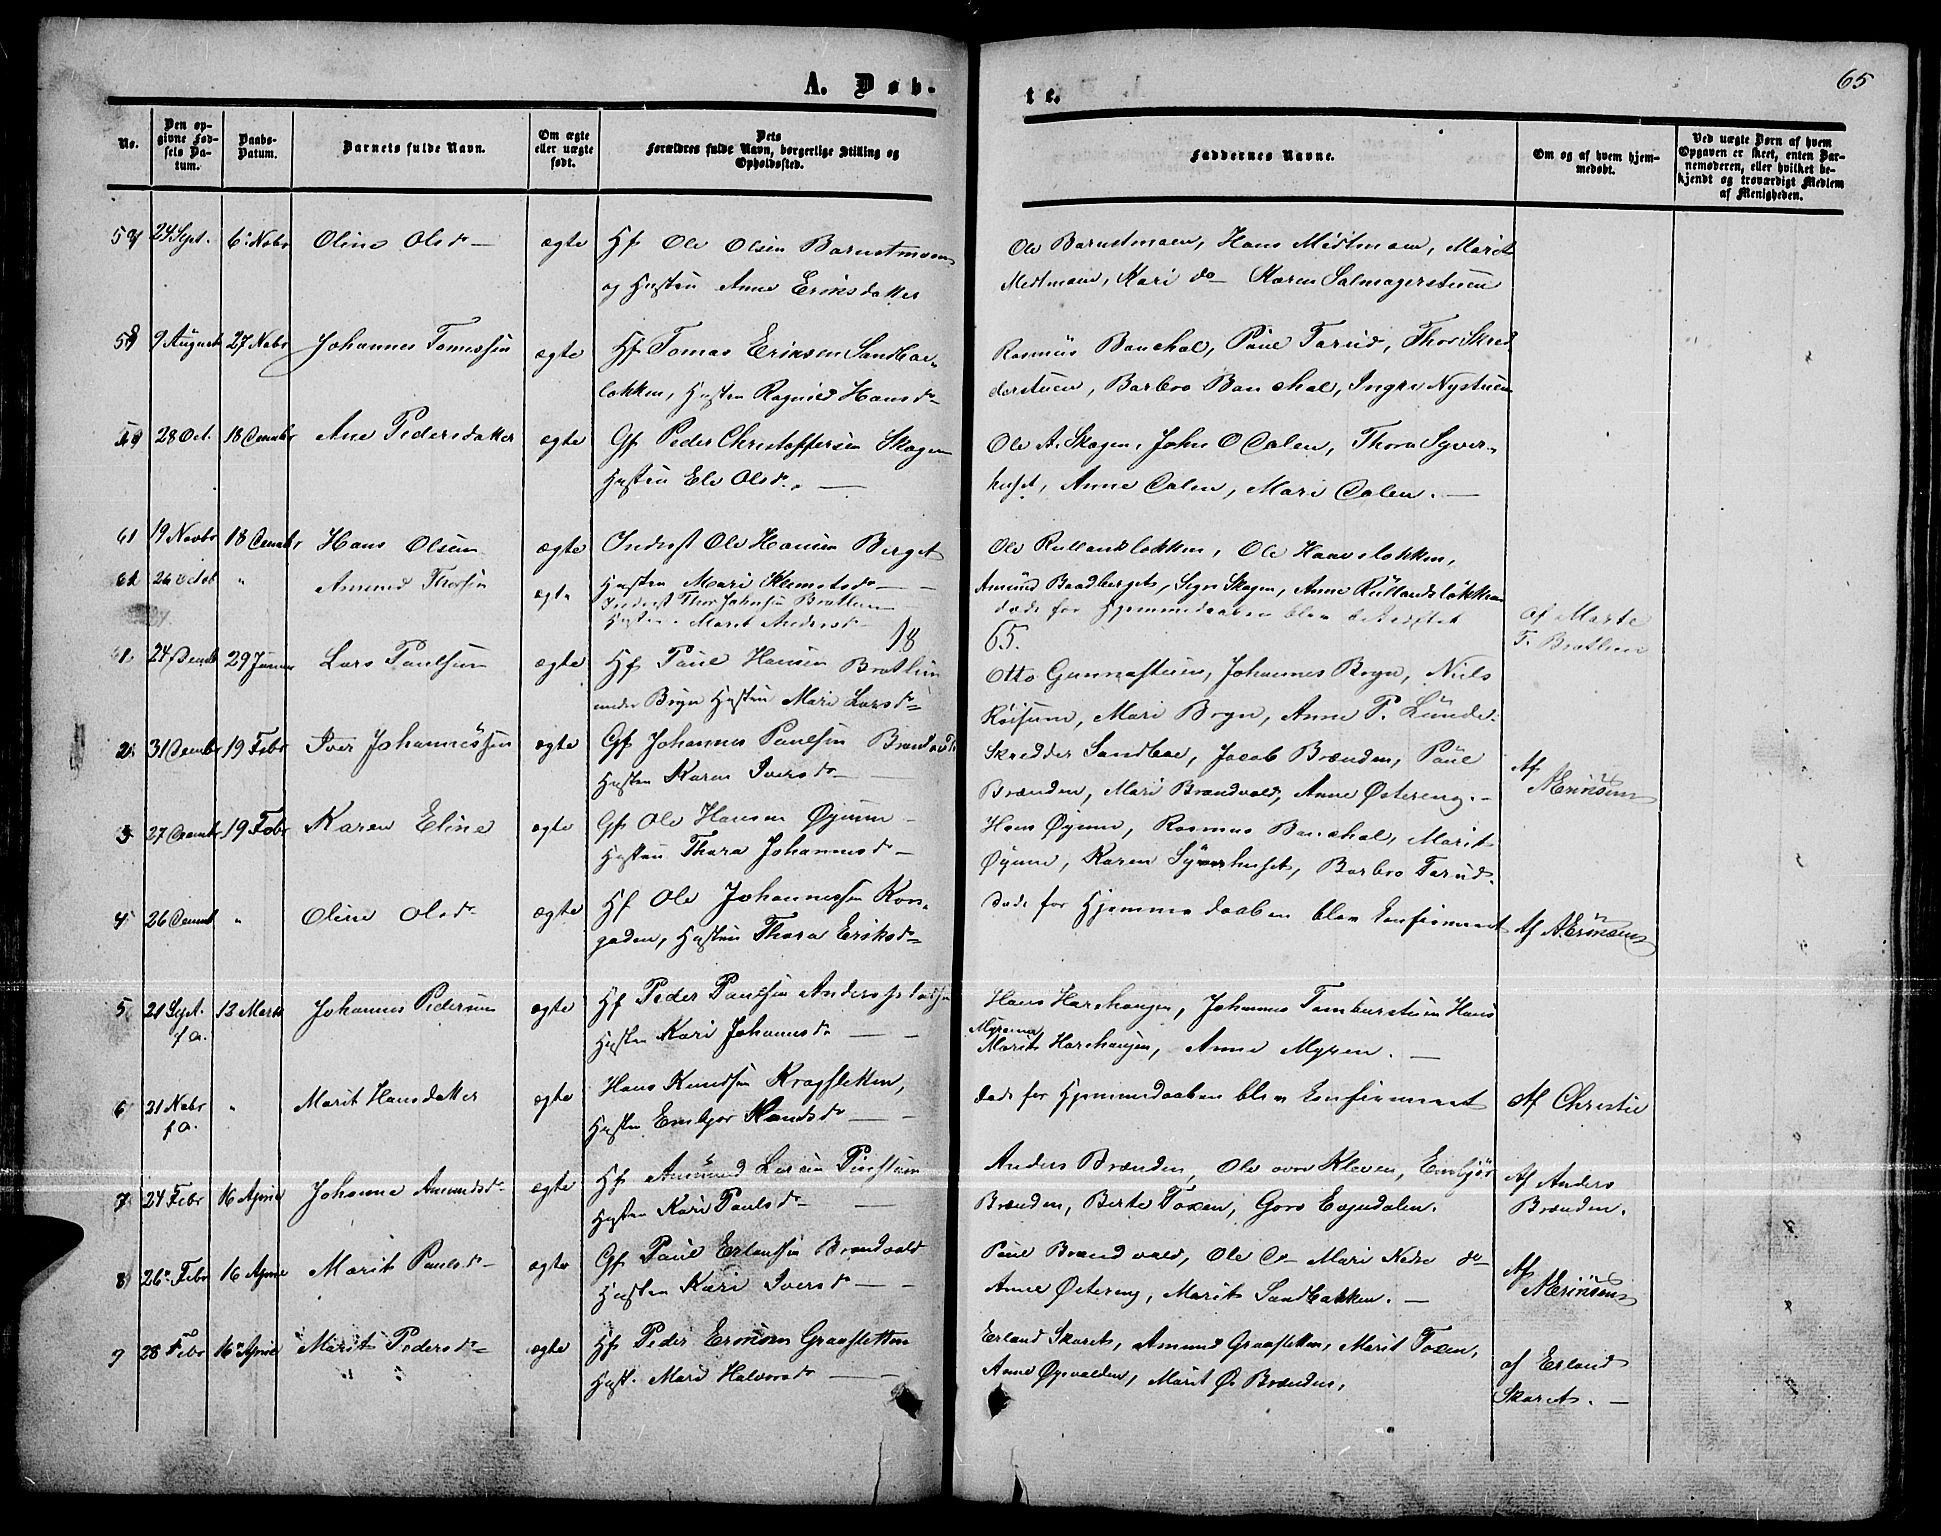 A. Døb-
te.
65
No.
Den op-
givne Fød-
sels Da-
tum.
Daabs-
Datum.
Barnets fulde Navn.
Om ægte
eller uægte
født.
Dets
Forældres fulde Navn, borgerlige Stilling og
Opholdssted.
Faddernes Navne.
Om og af hvem hjem-
medøbt.
Ved uægte Børn af hvem
Opgaven er skeet, enten Bar-
nemoderen, eller hvilket be-
kjendt og troværdigt Medlem
af Menigheden.
24 Sept. 6 Nobr Oline Olsdr ægte Hf Ole Olsen Barustmoen
og Hustru Anne Eriksdatter
Ole Barustmoen, Hans Midtmoen, Marit
Medtmoen, Kari do Karen Salmagerstuen
9 August 27 Nobr Johannes Tomessen ægte Hf Tomas Eriksen Sandbæ-
løkken, Hustru Ragnild Hansdr
Rasmus Bauchal, Paul Tarud, Thor Skred
derstuen, Barbro Bauchal, Ingri Nystuen
28 Oct. 18 Decembr Ane Pedersdatter ægte Gf Peder Christoffersen Skogen
Hustru Ele Olsdr.
Ole A. Skogen, John O Dalen, Thora Syver-
huset, Anne Dalen, Mari Dalen.
61 19 Novbr 18 Decembr Hans Olsen ægte Inderst Ole Hansen Berget
Hustru Mari Klemetsdr
Ole Rullandsløkken, Ole Haaveløkken,
Amund Baadberget, Sigri Skogen, Anne Rullandsløkken
26 Octob " Amund Thorsen ægte Inderst Thor Johnsen Bratlien
Hustru Marit Andersdr
døde før Hjemmedaaben blev bekræftet
af Marte
T. Bratlien
18
65.
1. 24 Decemb 29 Januar Lars Paulsen ægte Hf Paul Hansen Bratlien
under Bryn Hustru Mari Larsdr
Otto Gunnastuen, Johannes Bryn, Niels
Røisum, Mari Bryn, Anne P. Lunde.
2. 31 Decembr 19 Febr Iver Johannessen ægte Gf Johannes Paulsen Brændvold
Hustru Karen Iversdr
Skredder Sandboe, Jacob Brænden, Paul
Brænden, Mari Brændvold, Anne Østereng.
Af
A Eriksen
3 27 Decembr 19 Febr Karen Eline ægte Gf Ole Hansen Øyum
Hustru Thora Johannesdr
Hans Øyum, Rasmus Bauchal, Marit
Øyum, Karen Syverhuset, Barbro Tarud.
4 26 Decemb " Oline Olsdr ægte Hf Ole Johannessen Kon-
gaden, Hustru Thora Eriksdr
Døde før Hjemmedaaben blev Confirmeret
Af A Eriksen
5 21 Sept. 12 Marts Johannes Pedersen ægte Hf Peder Paulsen
f. a. Hustru Kari Johansdr
Hans Harehaugen, Johannes Tamburstuen Hans
Myrom
Marit Harehaugen, Anne Myren.
6 21 Nobr " Marit Hansdatter ægte Hans Knudsen Kragsletten,
f. a. Hustru Embjør Knudsdr
døde før Hjemmedaaben blev Confirmeret
Af Christie
7 24 Febr 16 April Johanne Amundsdr ægte Hf Amund Larsen
Hustru Kari Paulsdr
Anders Brænden, Ole over Kleven, Embjør
Brænden, Berte Toxen, Goro
Af Anders
Brænden.
8 26 Febr 16 April Marit Paulsdr ægte Gf Paul Erlandsen Brændvold
Hustru Kari Iversdr
Paul Brændvold, Ole do Mari Nedre do
Anne Østereng, Marit Sandbakken.
Af
A Eriksen
9 28 Febr 16 April Marit Pedersdr ægte Hf Peder Eriksen Graaslette
Hust. Mari Halvorsdr
Erland Skaret, Amund Graasletten, Marit Toxen,
Anne Øyevolden, Marit Ø. Brænden,
af Erland
Skaret.